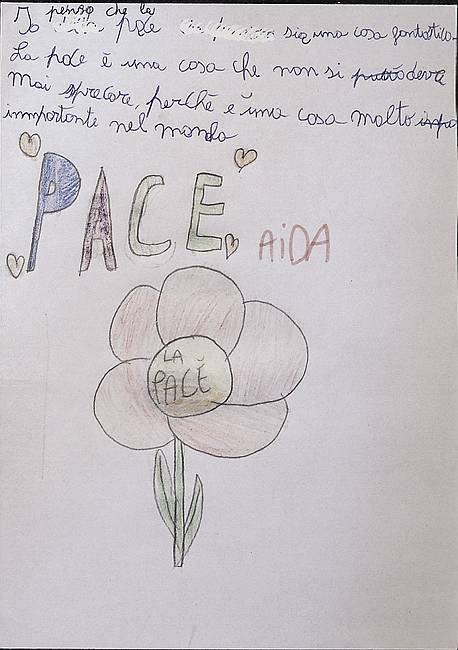 penso che la
Io pace sia una cosa fantastica.
La pace è una cosa che non si deve
mai sprecare, perchè è una cosa molto
immportante nel mondo
PACE
AiDA
LA
PACE